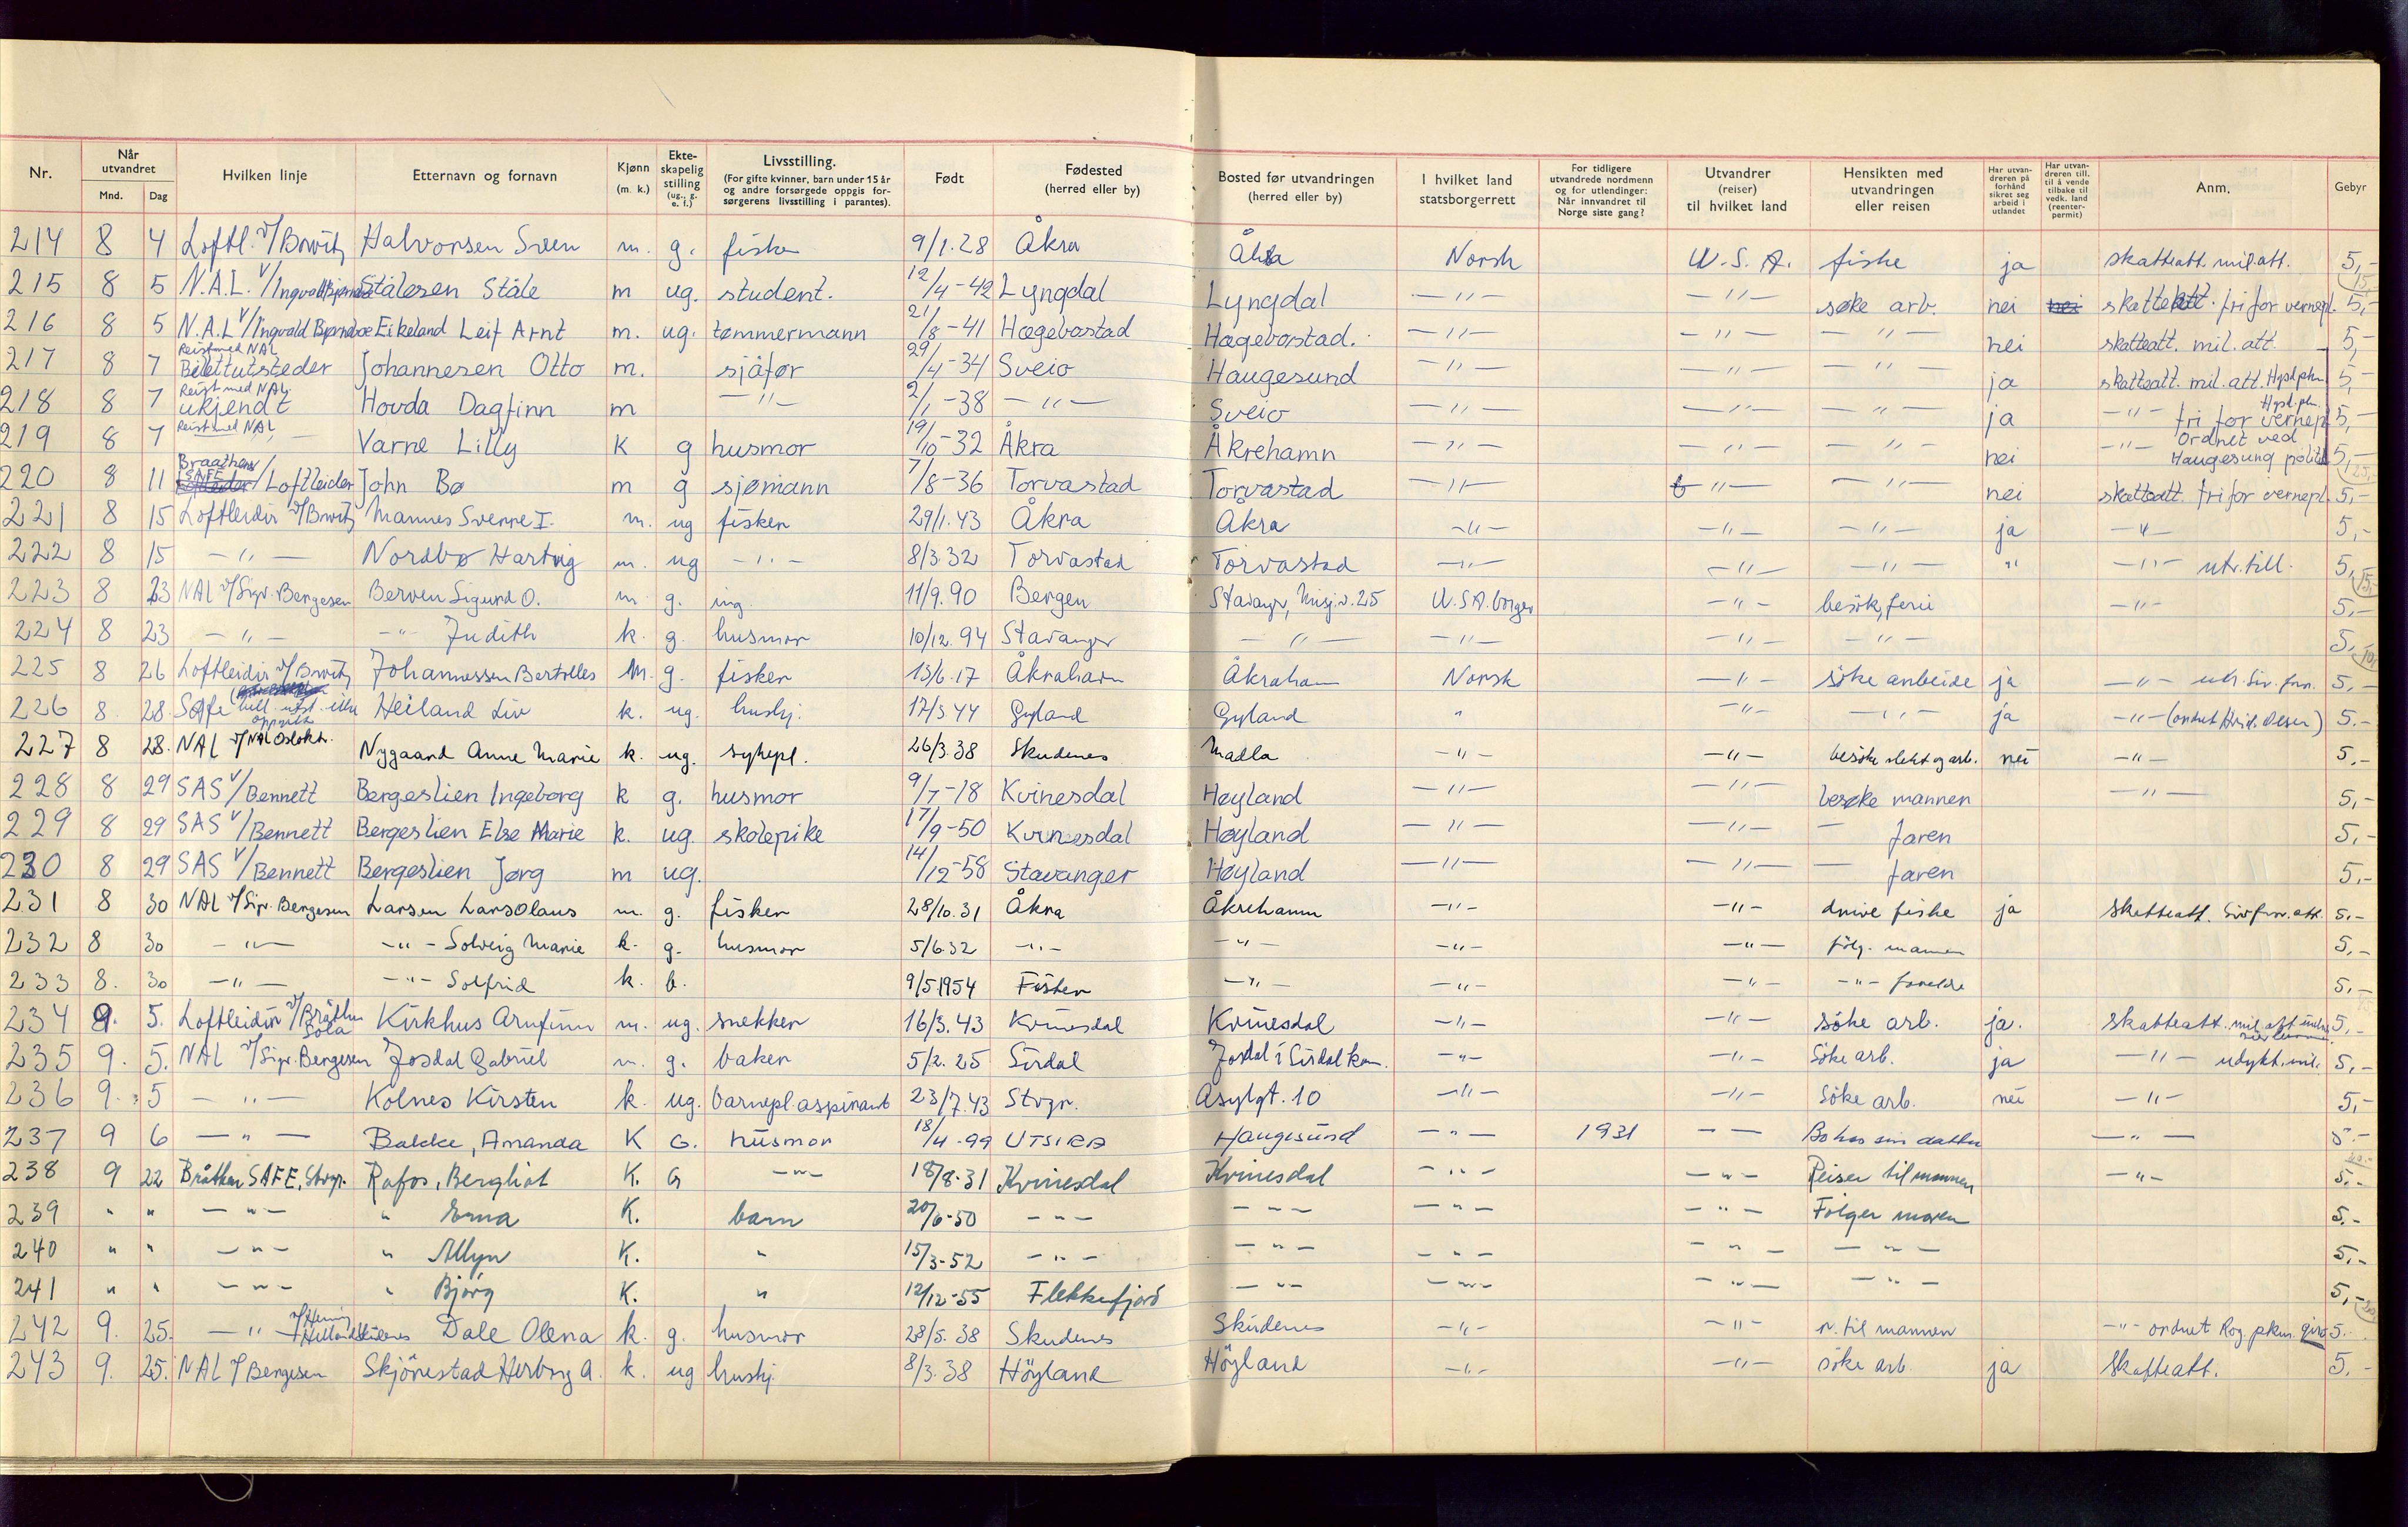 Nr. Når utvandret Mnd. Dag Hvilken linje Etternavn og fornavn Kjønn (m. k.) Ekteskapelig stilling (ug., g. e. f.) Livsstilling. (For gifte kvinner, barn under 15 år og andre forsørgede oppgis forsørgerens livsstilling i parantes). Født Fødested (herred eller by) Bosted før utvandringen (herred eller by) I hvilket land statsborgerrett For tidligere utvandrede nordmenn og for utlendinger: Når innvandret til Norge siste gang? Utvandrer (reiser) til hvilket land Hensikten med utvandringen eller reisen Har utvandreren på forhånd sikret seg arbeid i utlandet Har utvandreren till. til å vende tilbake til vedk. land (reenterpermit) Anm. Gebyr
214 8 4 Loftl. v/ Halvorsen Sven m. g. fisker 9/1.28 Åkra Åkra Norsk U.S.A. fiske ja skatteatt. mil.att. 5,-
215 8 5 N.A.L. v/Ingvald Bjørnebo Stålesen Ståle m ug. student. 12/4-42 Lyngdal Lyngdal —"— —"— søke arb. nei nei skatteatt. fri for vernepl. 5,-
216 8 5 N.A.L v/Ingvald Bjørneboe Eikeland Leif Arnt m. ug. tømmermann 21/8-41 Hægebostad Hægebostad. —"— —"— —"— nei skatteatt. mil.att. 5,-
217 8 7 Reist med NAL Billettutsteder Johannesen Otto m. sjåfør 29/4-34 Sveio Haugesund —"— —"— —"— ja skatteatt. mil.att. Hgsd pkm 5,-
218 8 7 Reist med NAL. ukjendt Hovda Dagfinn m —"— 2/1-38 —"— Sveio —"— —"— —"— ja —"— fri for vernepl. Hgsd.pk. 5,-
219 8 7 Reist med NAL — Varne Lilly K g husmor 19/10-32 Åkra Åkrehamn —"— —"— —"— nei —"— Ordnet ved Haugesund politi 5,-
220 8 11 Braathens SAFE/Loftleider John Bø m g sjømann 7/8-36 Torvastad Torvastad —"— —"— —"— nei skatteatt. fri for vernepl. 5,-
221 8 15 Loftleidir v/ Mannes Sverre I. m. ug fisker 29/1.43 Åkra Åkra —"— —"— —"— ja —"— 5,-
222 8 15 —"— Nordbø Hartvig m. ug —"— 8/3.32 Torvastad Torvastad —"— —"— —"— " —"— utr.till. 5,-
223 8 23 NAL v/Sigv. Bergesen Berven Sigurd O. m g. ing. 11/9.90 Bergen Stavanger, Misj.v.25 U.S.A. borger —"— besøk, ferie —"— 5,-
224 8 23 —"— —"— Judith k. g. husmor 10/12.94 Stavanger —"— —"— —"— —"— 5,-
225 8 26 Loftleidir v/ Johannessen Bertelles m. g. fisker 13/6.17 Åkrahamn Åkrahamn Norsk —"— söke arbeide ja —"— utr. Siv.forv. 5,-
226 8 28. Safe (bill.utst. ikke oppgitt Heiland Liv k. ug. hushj. 17/3.44 Gyland Gyland " —"— —"— ja —"— (ordnet Olsen) 5.-
227 8 28. NAL v/NAL Oslokt. Nygaard Anne Marie k. ug. sykepl. 26/3.38 Skudenes Madla —"— —"— besöke slekt og arb. nei —"— 5,-
228 8 29 SAS v/Bennett Bergeslien Ingeborg k g. husmor 9/7-18 Kvinesdal Høyland —"— —"— besøke mannen —"— 5,-
229 8 29 SAS v/Bennett Bergeslien Else Marie k. ug. skolepike 17/9-50 Kvinesdal Høyland —"— —"— — faren 5,-
230 8 29 SAS v/Bennett Bergeslien Jørg m ug. 14/12-58 Stavanger Høyland —"— —"— — faren 5,-
231 8 30 NAL v/Sigv. Bergesen Larsen Lars Olaus m. g. fisker 28/10.31 Åkra Åkrehamn —"— —"— drive fiske ja Skatteatt. Sivforv.att. 5,-
232 8 30 —"— —"— Solveig Marie k. g. husmor 5/6.32 —"— —"— —"— —"— fölg. mannen 5,-
233 8. 30 —"— —"— Solfrid k. b. 9/5 1954 Fister —"— —"— —"— —"— foreldre 5,-
234 9. 5. Loftleidir v/Bråthen Sola Kirkhus Arnfinn m. ug. snekker 16/3.43 Kvinesdal Kvinesdal —"— —"— söke arb. ja. Skatteatt. mil.att 5,-
235 9. 5. NAL v/Sigv. Bergesen Josdal Gabriel m. g. baker 5/2.25 Sirdal Josdal i Sirdal kom. —"— —"— Söke arb. ja —"— udykt.mil. 5,-
236 9. 5 —"— Kolnes Kirsten k. ug. barnepl.aspirant 23/7.43 Stvgr. Asylgt. 10 —"— —"— Söke arb. nei —"— 5,-
237 9 6 —"— Bakke, Amanda K G. husmor 18/4-99 UTSIRA Haugesund —"— 1931 — — Bo hos sin datter —"— 5.-
238 9 22 Bråthen SAFE, Stvgr. Rafos, Bergliot K. G —"— 18/8-31 Kvinesdal Kvinesdal —"— —"— Reiser til mannen —"— 5,-
239 " " —"— " Erna K. barn 20/6-50 —"— —"— —"— —"— Følger moren 5.-
240 " " —"— " Allyn K. " 15/3-52 —"— —"— —"— —"— —"— 5,-
241 " " —"— " Bjørg K. " 12/12-55 Flekkefjord —"— —"— —"— —"— 5,-
242 9. 25. —"— Dale Olena k. g. husmor 28/5.38 Skudenes Skudenes —"— —"— r. til mannen —"— ordnet Rog. pkm. giro 5.-
243 9. 25. NAL v/Bergesen Skjörestad Herborg A. k. ug hushj. 8/3.38 Höyland Höyland —"— —"— söke arb. ja Skatteatt. 5,-